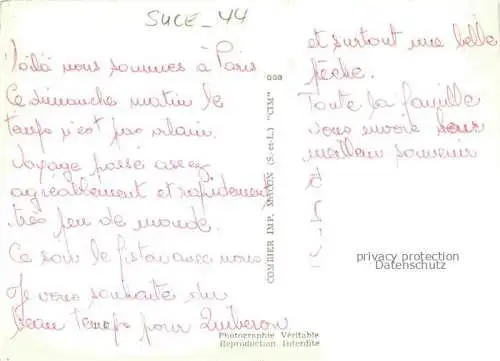 SUCE_44
Voilà nous sommes à Paris
Ce dimanche matin le
temps n'est pas vilain.
Voyage passé assez
agréablement et rapidement
très peu de monde.
Ce soir le fiston avec nous
Je vous souhaite du
beau temps pour Quiberon
et surtout une belle
pêche.
Toute la famille
vous envoie leur
meilleur souvenir
COMBIER IMP. MACON (S.-et-L.) "CIM"
privacy protection
Datenschutz
Photographie Véritable
Reproduction Interdite